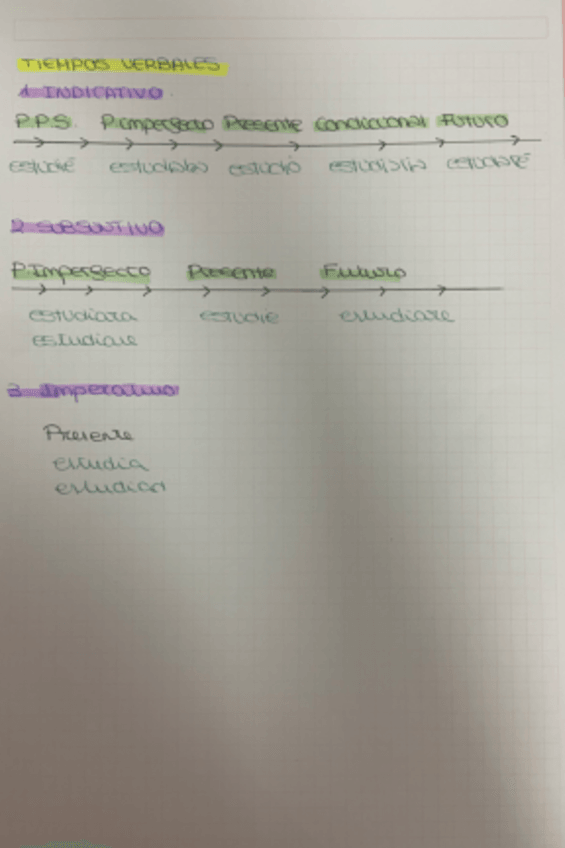 TIEMPOS VERBALES
1. INDICATIVO.
P.P.S. P.imperfecto Presente Condicional Futuro
estudié estudiaba estudio estudiaría estudiaré
2. SUBJUNTIVO
P.Imperfecto Presente Futuro
estudiara estudie estudiare
estudiase
3. Imperativo
Presente
estudia
estudiad